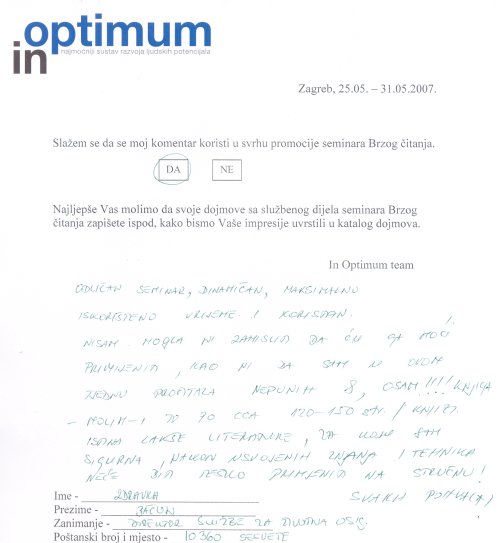 optimum
in
najmoćniji sustav razvoja ljudskih potencijala
Zagreb, 25.05. – 31.05.2007.
Slažem se da se moj komentar koristi u svrhu promocije seminara Brzog čitanja.
DA NE
Najljepše Vas molimo da svoje dojmove sa službenog dijela seminara Brzog
čitanja zapišete ispod, kako bismo Vaše impresije uvrstili u katalog dojmova.
In Optimum team
ODLIČAN SEMINAR, DINAMIČAN, MAKSIMALNO
ISKORIŠTENO VRIJEME I KORISTAN.
NISAM MOGLA NI ZAMISLITI DA ĆU GA MOĆI
PRIMIJENITI, KAO NI DA SAM U OVOM
TJEDNU PROČITALA NEPUNIH 8, OSAM!!!! knjiga
- MOLIM- TO 70 CCA 120-150 str. / KNJIZI.
ISTINA LAKŠE LITERATURE, ZA KOJE SAM
SIGURNA, NAKON USVOJENIH ZNANJA I TEHNIKA
NEĆE BITI TEŠKO PRIMIJENITI NA STRUČNU!
SVAKA POHVALA
Ime - ZDRAVKA
Prezime -
Zanimanje - DIREKTOR SLUŽBE ZA ŽIVOTNA OSIG.
Poštanski broj i mjesto - 10360 SESVETE